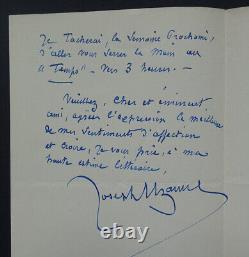 Je Tacherai, la Semaine Prochaine,
d'aller vous Serrer la Main au
"Temps" - Vers 3 heures. -
Veuillez, Cher et éminent
ami, agréer l'expression la meilleure
de mes Sentiments d'affection
et Croire, Je vous prie, à ma
haute estime littéraire,
Joseph
ebay